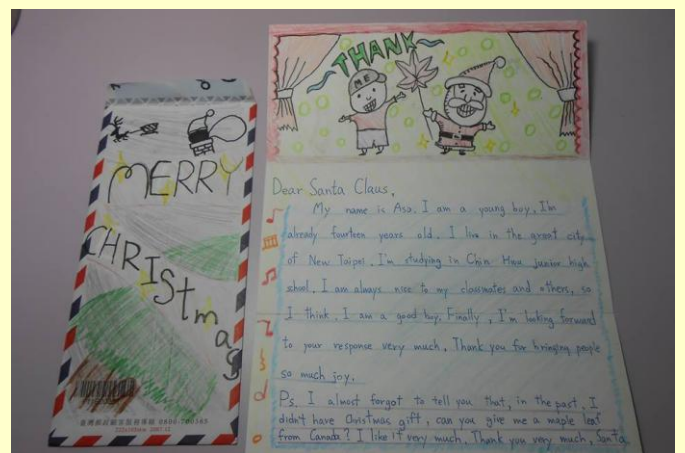 MERRY
CHRISTmas
THANK
ME
Dear Santa Claus,
My name is Aso. I am a young boy, I'm
already fourteen years old. I live in the great city
of New Taipei. I'm studying in Chin Hwa junior high
school. I am always nice to my classmates and others, so
I think, I am a good boy. Finally, I'm looking forward
to your response very much. Thank you for bringing people
so much joy.
Ps. I almost forgot to tell you that, in the past, I
didn't have Christmas gift, can you give me a maple leaf
from Canada? I like it very much. Thank you very much, Santa